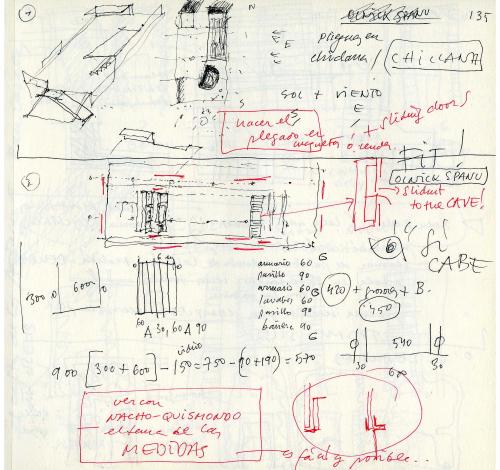 1
OLNICK SPANU
135
N
E
pliegue en
chiclana / CHICLANA
SOL + VIENTO
E
S
hacer el
plegado en
maqueta o render
+ sliding doors
FIT!
2
OLNICK SPANU
→ slident
to the CAVE!
6
"SI
CABE
armario 60
pasillo 90
armario 60
lavabos 60
pasillo 90
bañera 90
G
G
G
420 + grosores + B.
450
300
600
60 A 30, 60 A 90
vidrio
900 [300 + 600] - 150 = 750 - (90 + 190) = 570
540
30
30
600
ver con
NACHO-QUISMONDO
el tema de las
MEDIDAS
es fácil y posible...